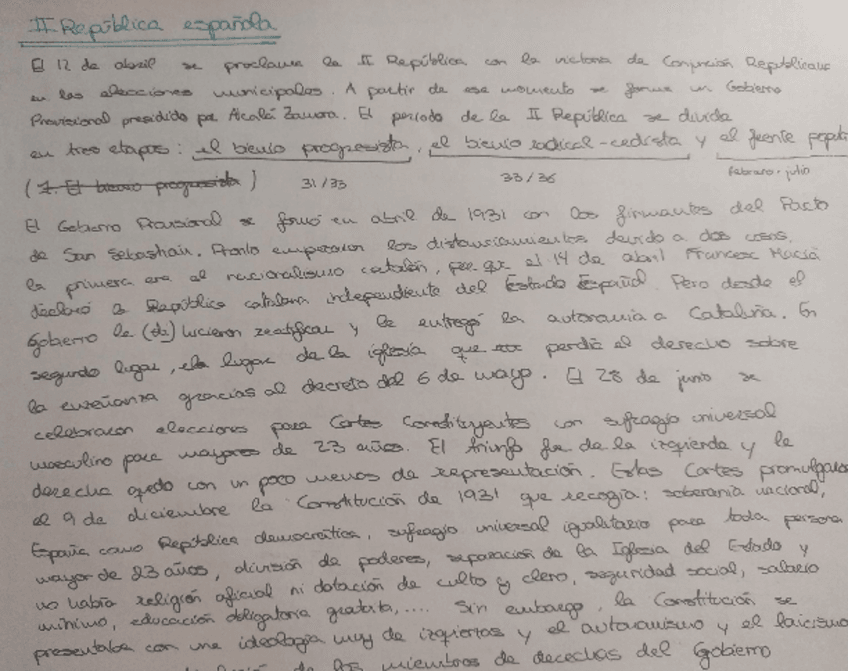 II República española
El 12 de abril se proclama la II República con la victoria de Conjunción Republicana
en las elecciones municipales. A partir de ese momento se forma un Gobierno
Provisional presidido por Alcalá Zamora. El periodo de la II República se divide
en tres etapas: el bienio progresista, el bienio radical-cedista y el frente popul
(1. El bienio progresista) 31/33 33/36 febrero-julio
El Gobierno Provisional se formó en abril de 1931 con los firmantes del Pacto
de San Sebastián. Pronto empezaron los distanciamientos devido a dos cosas.
la primera era el nacionalismo catalán, por que el 14 de abril Francesc Macià
declaró la República catalana independiente del Estado Español. Pero desde el
Gobierno le (da) hicieron rectificar y le entregó la autonomía a Cataluña. En
segundo lugar, el lugar de la iglesia que perdía el derecho sobre
la enseñanza gracias al decreto del 6 de mayo. El 28 de junio se
celebraron elecciones para Cortes Constituyentes con sufragio universal
masculino para mayores de 23 años. El triunfo fue de la izquierda y la
derecha quedo con un poco menos de representación. Estas Cortes promulgaron
el 9 de diciembre la Constitución de 1931 que recogía: soberanía nacional,
España como República democrática, sufragio universal igualitario para toda persona
mayor de 23 años, división de poderes, separación de la Iglesia del Estado y
no había religión oficial ni dotación de culto y clero, seguridad social, salario
mínimo, educación obligatoria gratuita,.... Sin embargo, la Constitución se
presentaba con una ideología muy de izquierdas y el autonomismo y el laicismo
de los miembros de derechas del Gobierno